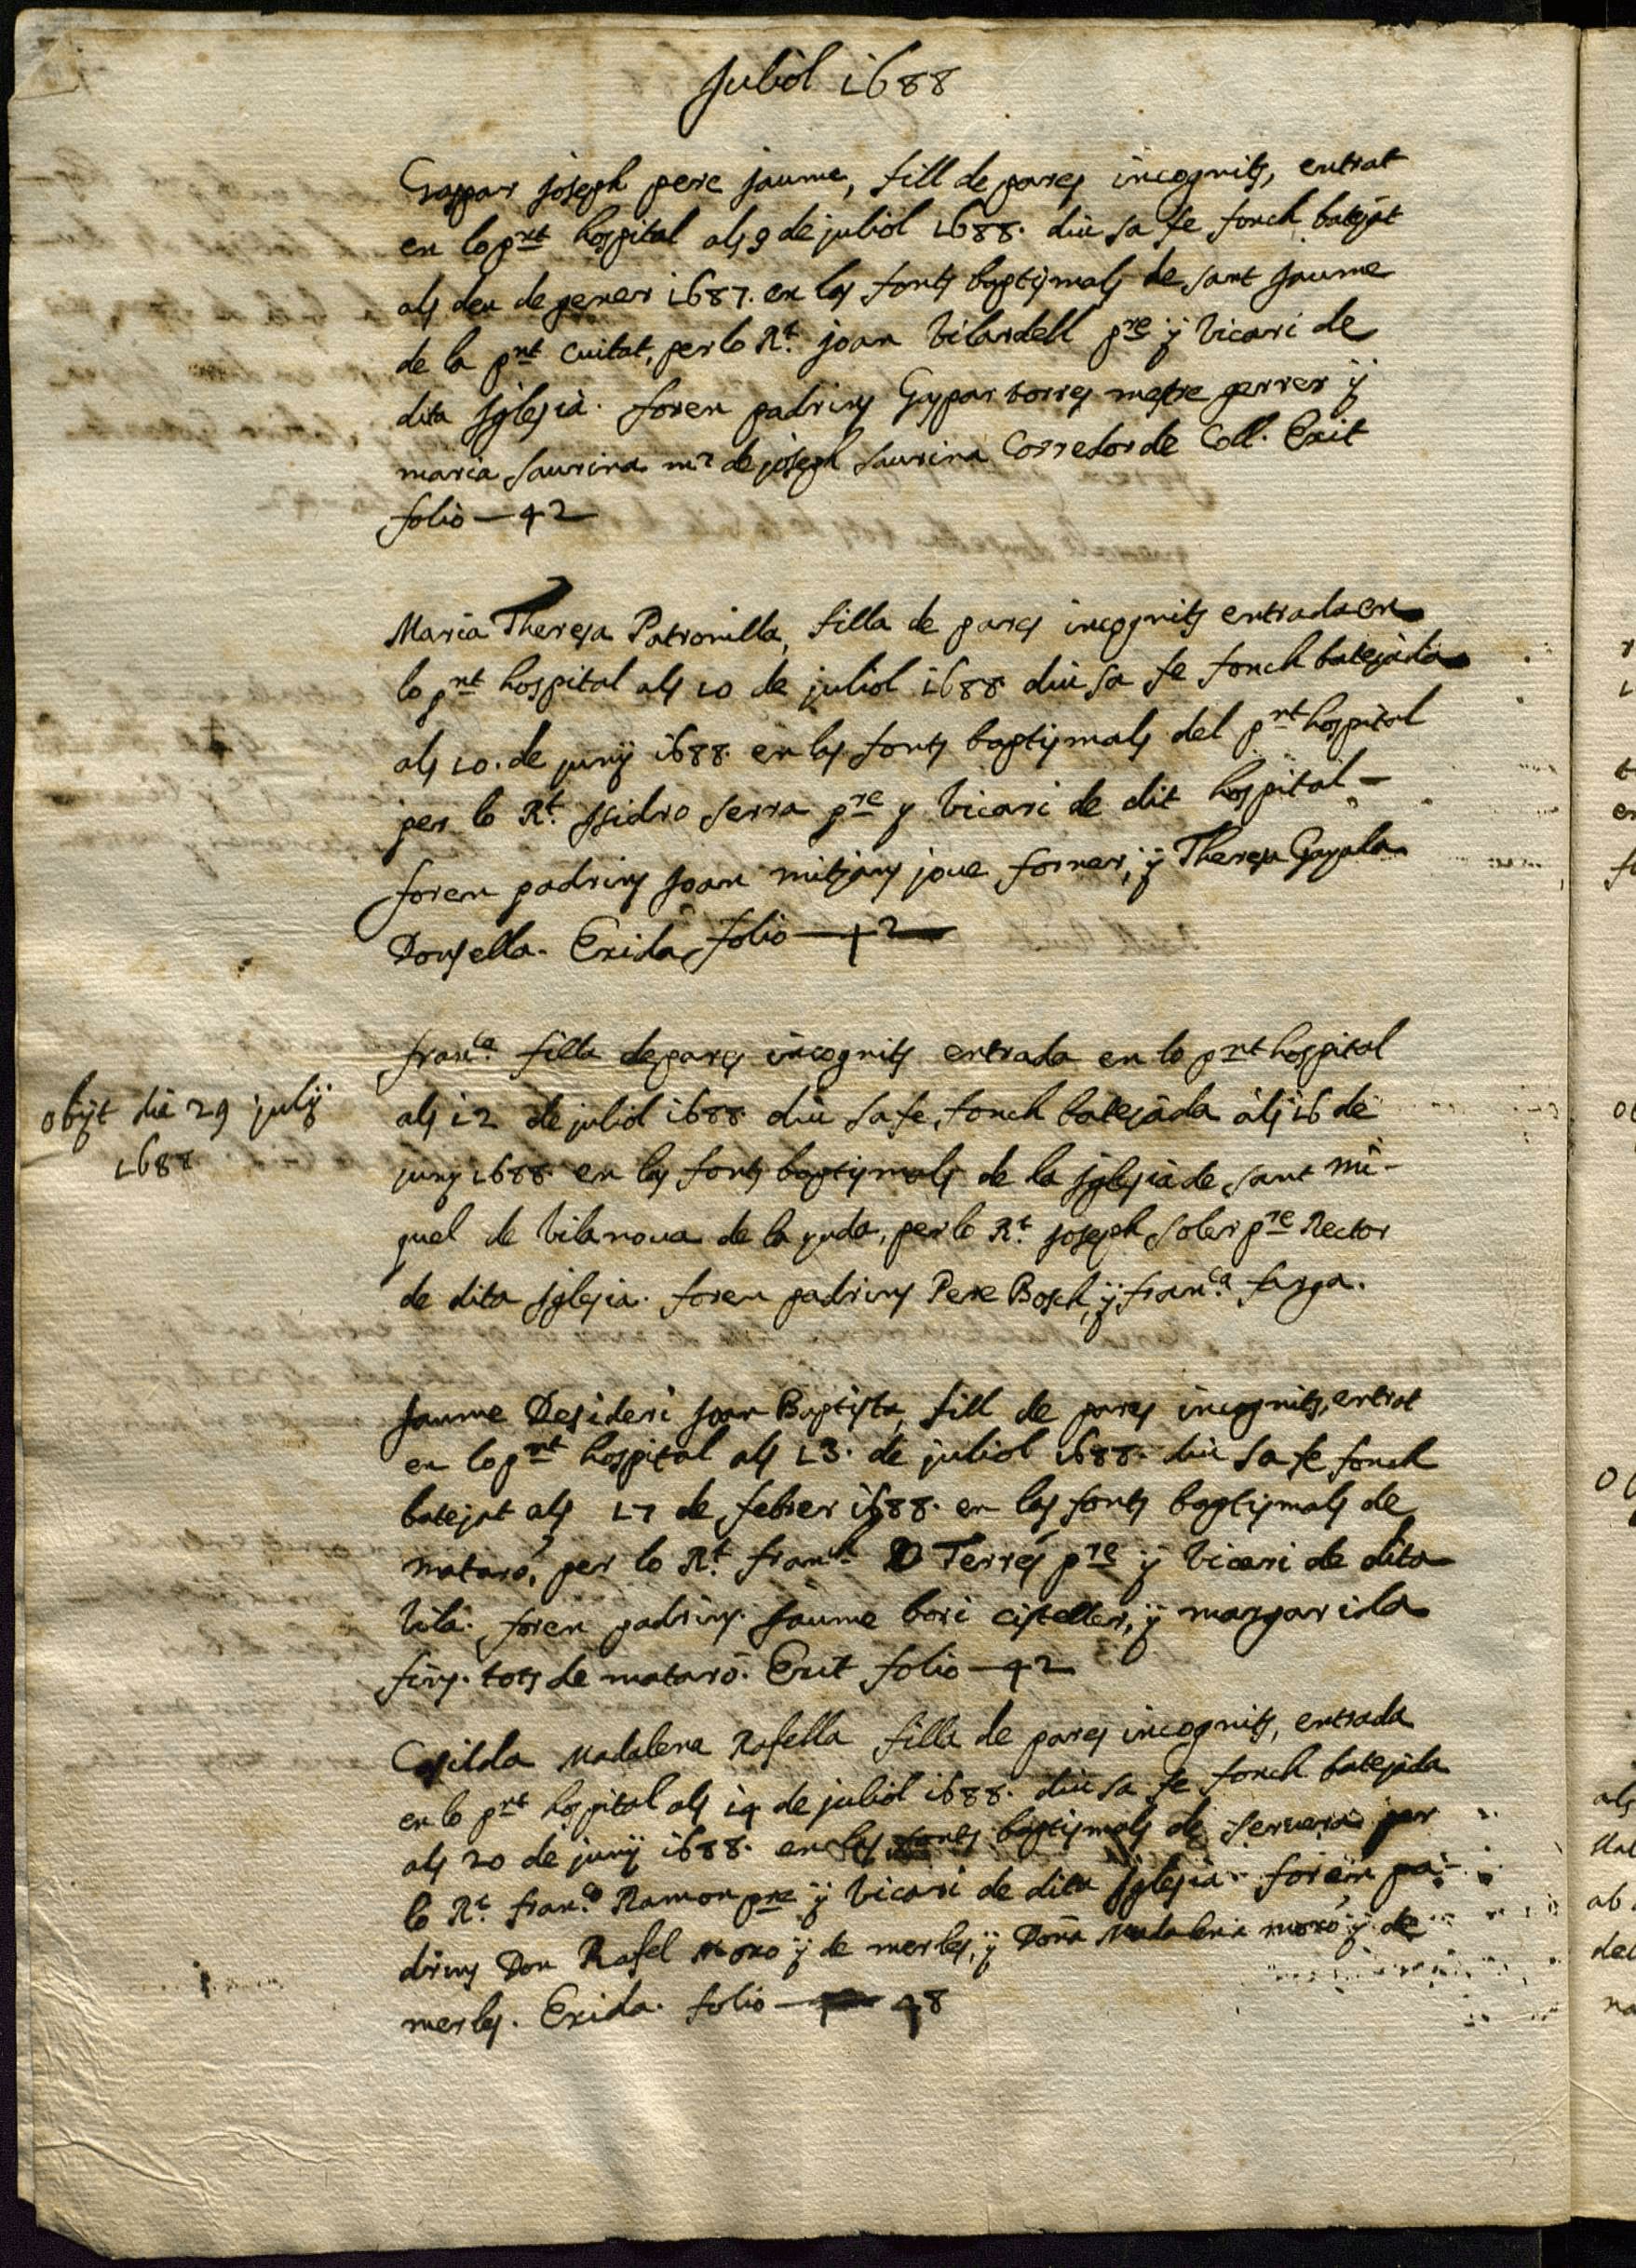 Juliol 1688
Gaspar joseph pere jaume, fill de pares incognits, entrat
en lo pnt hospital als 9 de juliol 1688. diu sa fe fonch batejat
als deu de gener 1687. en las fonts baptismals de sant Jaume
de la pnt Ciutat, per lo Rt. joan Vilardell pre ÿ Vicari de
dita Iglesia. foren padrins Gaspar torres mestre gerrer ÿ
maria saurina mr de joseph saurina Corredor de Coll. Exit
folio — 42
Maria Theresa Patronilla, filla de pares incognits entrada en
lo pnt hospital als 10 de juliol 1688 diu sa fe fonch batejada
als 10. de junÿ 1688. en las fonts baptismals del pnt hospital
per lo Rt. Isidro serra pre y Vicari de dit hospital -
foren padrins Joan mitjans jove forner, ÿ Theresa Gayala
Donsella. Exida folio — 42
franca. filla de pares incognits entrada en lo pnt hospital
als 12 de juliol 1688 diu sa fe, fonch batejada als 16 de
juny 1688. en las fonts baptismals de la Iglesia de sant mi-
quel de Vilanova de la guda, per lo Rt. Joseph Soler pre Rector
de dita Iglesia. foren padrins Pere Bosch, ÿ franca. farga.
obÿt die 29 julÿ
1688
Jaume Desideri Joan Baptista, fill de pares incognits, entrat
en lo pnt hospital als 13. de juliol 1688. diu sa fe fonch
batejat als 17 de febrer 1688. en las fonts baptismals de
mataró, per lo Rt. franch. Terrés pre ÿ Vicari de dita
Vila. foren padrins. Jaume bori cisteller, ÿ margarida
fins. tots de mataró. Exit folio — 42
Casilda Madalena Rafella filla de pares incognits, entrada
en lo pnt hospital als 14 de juliol 1688. diu sa fe fonch batejada
als 20 de junÿ 1688. en las fonts baptismals de servera per
lo Rt. franco. Ramon pre ÿ Vicari de dita Iglesia. foren pa-
drins Don Rafel Moxo ÿ de merles, ÿ Doña Madalena moxó ÿ de
merles. Exida. folio — 48